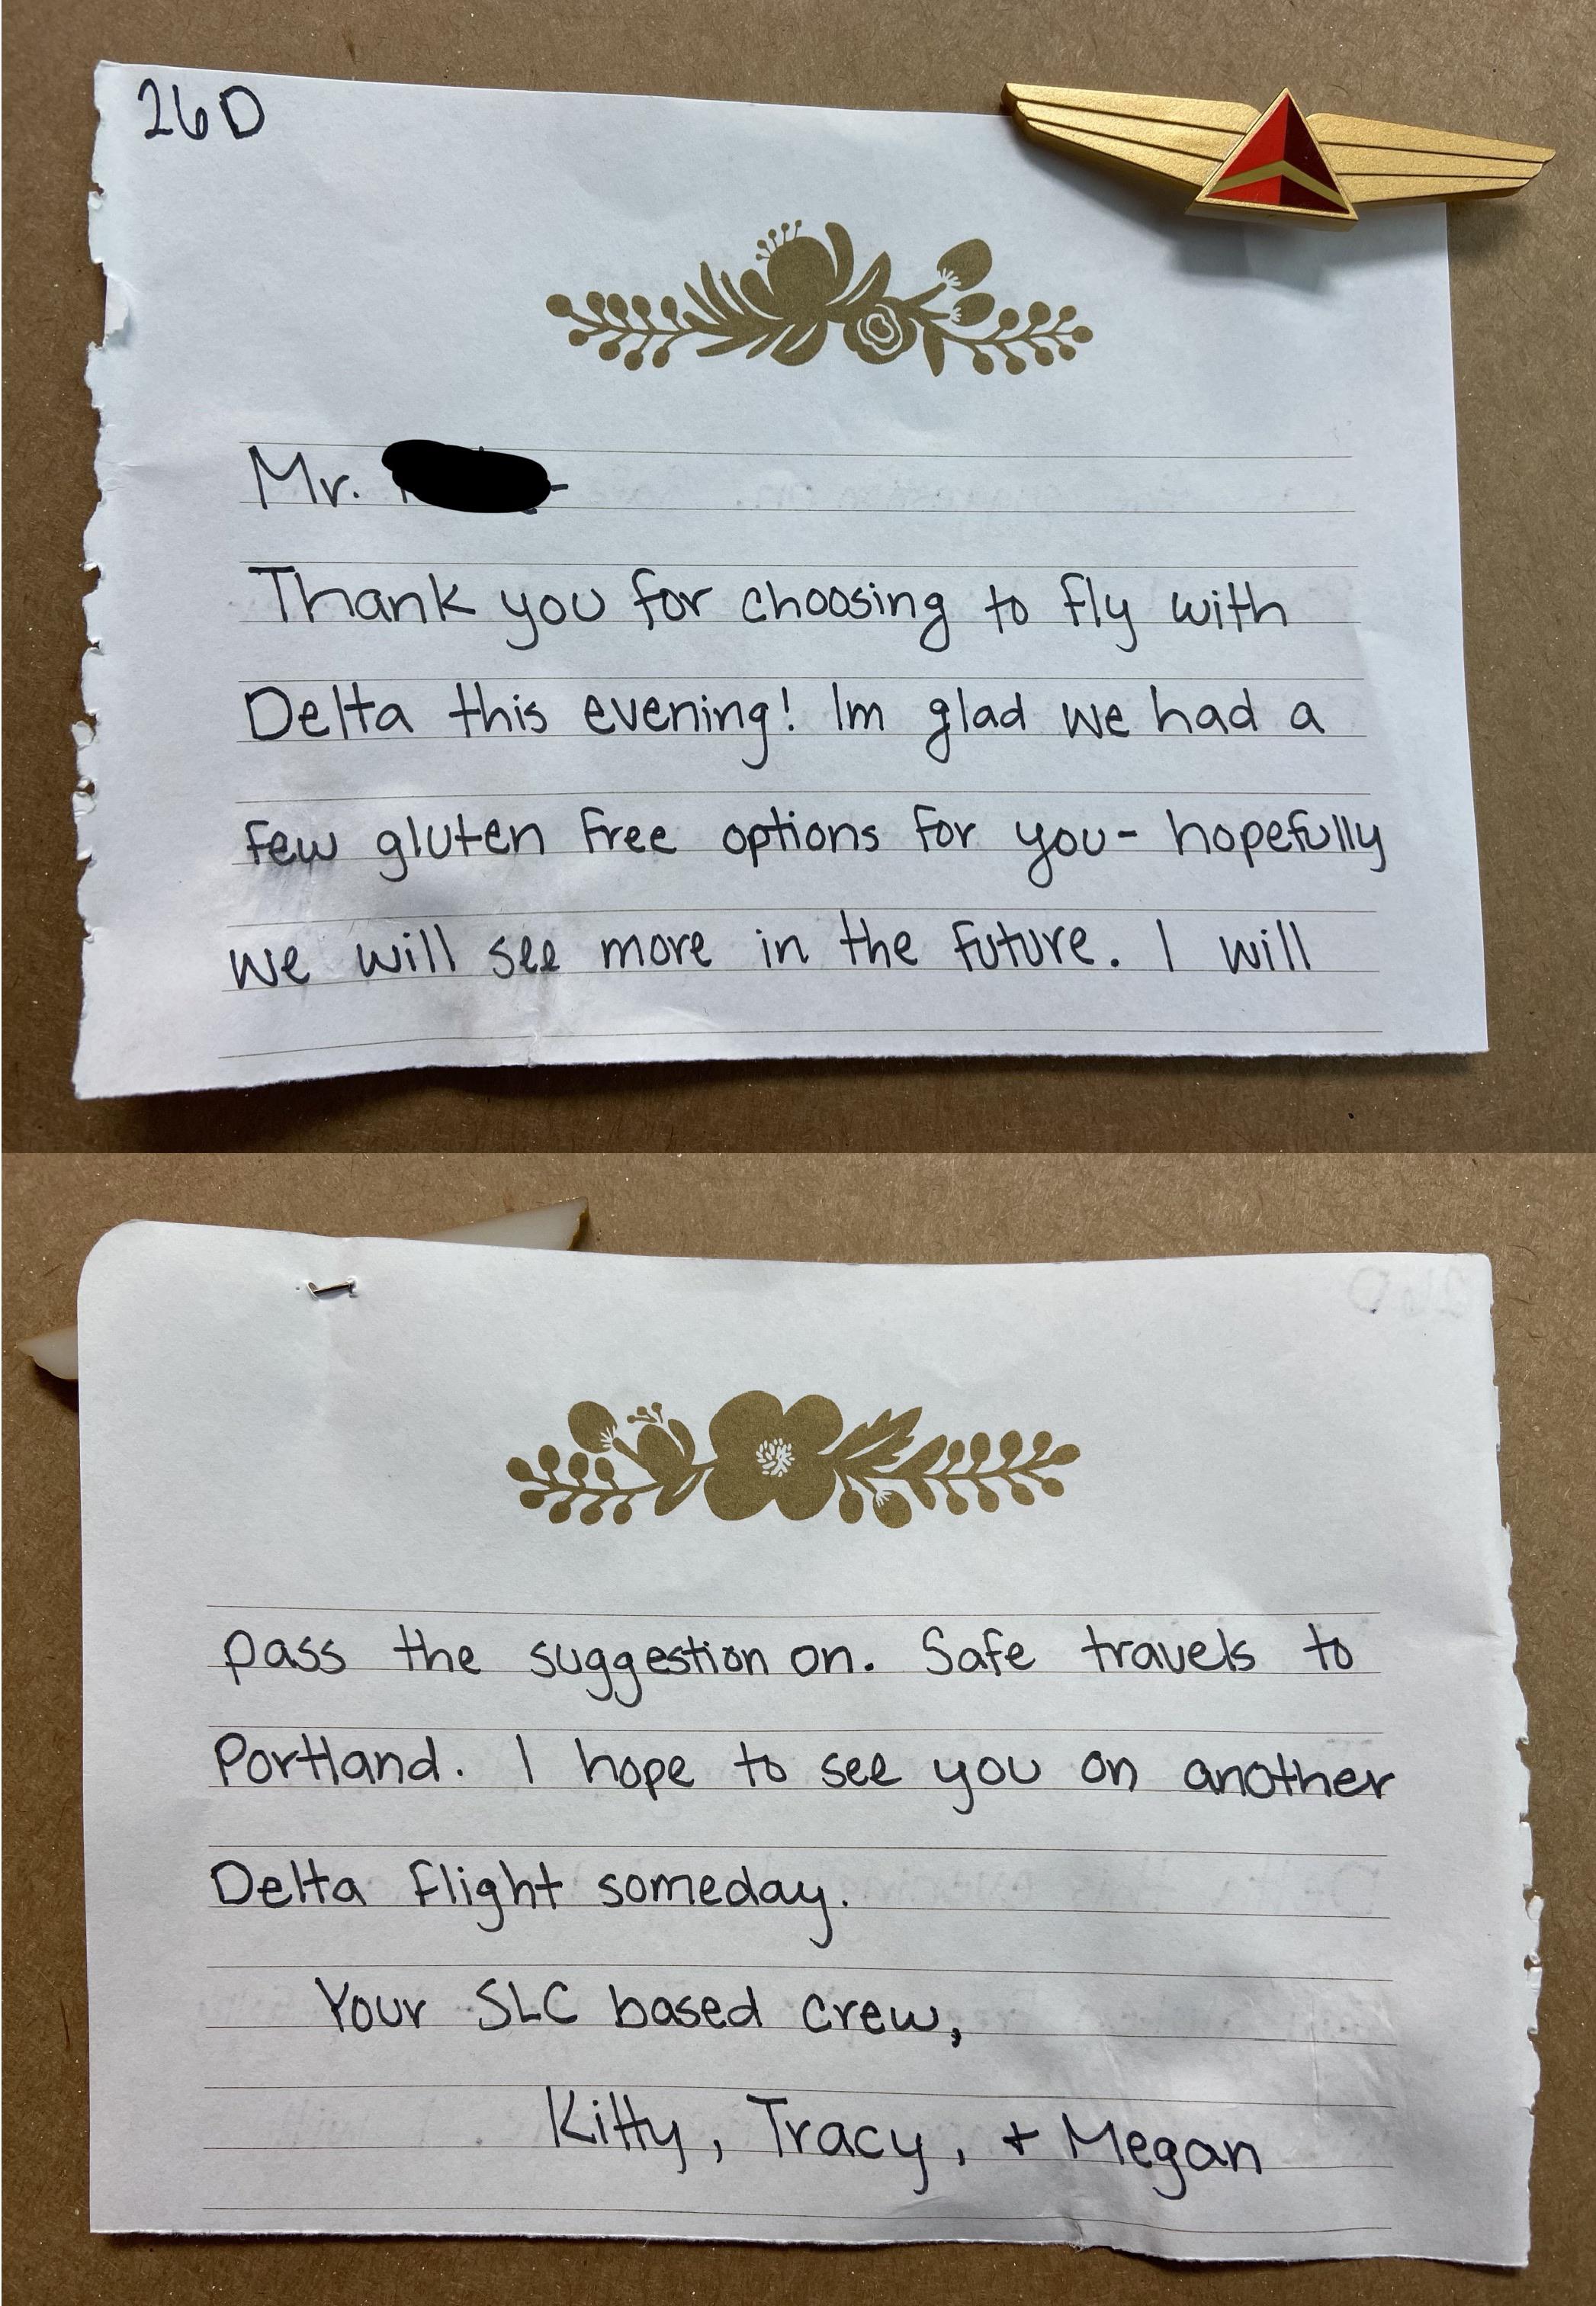 26D
Mr.
Thank you for choosing to fly with
Delta this evening! Im glad we had a
few gluten free options for you- hopefully
we will see more in the future. I will
pass the suggestion on. Safe travels to
Portland. I hope to see you on another
Delta flight someday.
Your SLC based crew,
Kitty, Tracy, + Megan